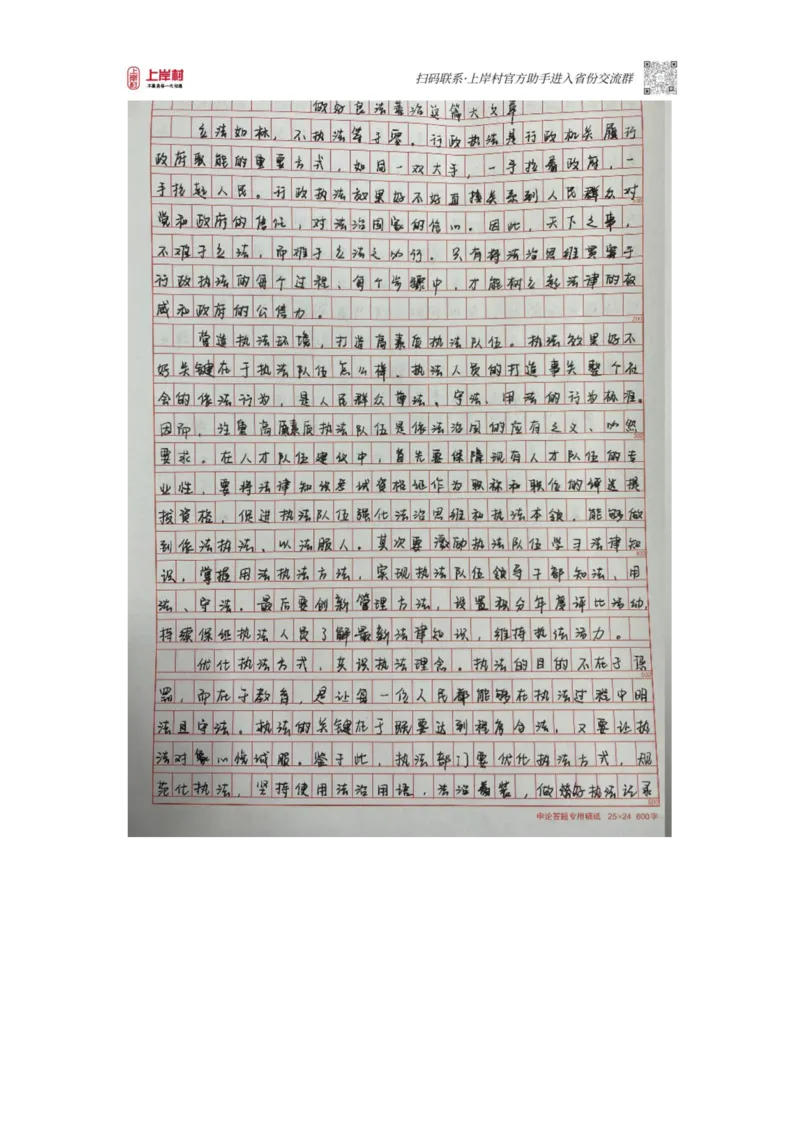 上岸村
不辜负每一代知遇
扫码联系·上岸村官方助手进入省份交流群
做好良法善治这篇大文章
立法如林,不执法等于零。行政执法是行政机关履行
政府职能的重要方式,如同一双大手,一手拉着政府,一
手拉起人民。行政执法效果好不好直接关系到人民群众对
党和政府的信任,对法治国家的信心。因此,天下之事,
不难于立法,而难于立法之必行。只有将法治思维贯穿于
行政执法的每个过程、每个步骤中,才能树立起法律的权
威和政府的公信力。
200
营造执法环境,打造高素质执法队伍。执法效果好不
好关键在于执法队伍怎么样,执法人员的打造事关整个社
会的依法行为,是人民群众尊法、守法、用法的行为标准。
因而,注重高素质执法队伍是依法治国的应有之义、必然
300
要求。在人才队伍建设中,首先要保障现有人才队伍的专
业性,要将法律知识考试资格证作为职称和职位的评选提
拔资格,促进执法队伍强化法治思维和执法本领,能够做
到依法执法、以法服人。其次要激励执法队伍学习法律知
400
识,掌握用法执法方法,实现执法队伍领导干部知法、用
法、守法。最后要创新管理方法,设置积分年度评比活动,
持续保证执法人员了解最新法律知识,维持执法活力。
优化执法方式,实误执法理念。执法的目的不在于
500
,而在于教育,是让每一位人民都能够在执法过程中明
法且守法。执法的关键在于既要达到程序合法,又要让执
法对象心悦诚服。鉴于此,执法部门要优化执法方式,规
范化执法,坚持使用法治用语,法治着装,做好执法记录
600
申论答题专用稿纸 25×24 600字